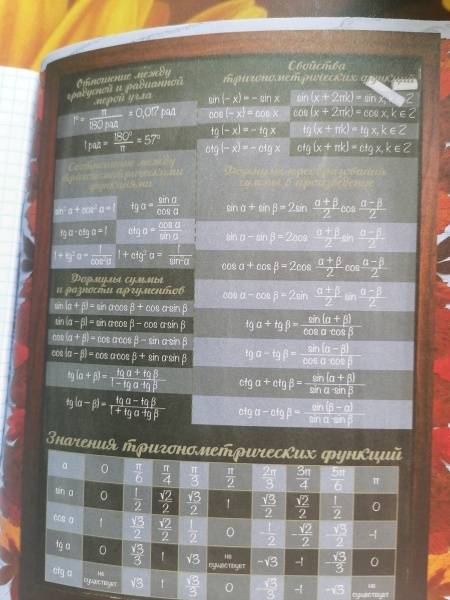 Отношение между
градусной и радианной
мерой угла
1° = π / 180 рад = 0,017 рад
1 рад = 180° / π = 57°
Соотношение между
тригонометрическими
функциями
sin² α + cos² α = 1 tg α = sin α / cos α
tg α · ctg α = 1 ctg α = cos α / sin α
1 + tg² α = 1 / cos² α 1 + ctg² α = 1 / sin² α
Формулы суммы
и разности аргументов
sin (α + β) = sin α·cos β + cos α·sin β
sin (α – β) = sin α·cos β – cos α·sin β
cos (α + β) = cos α·cos β – sin α·sin β
cos (α – β) = cos α·cos β + sin α·sin β
tg (α + β) = tg α + tg β / 1 – tg α·tg β
tg (α – β) = tg α – tg β / 1 + tg α·tg β
Свойства
тригонометрических функций
sin (– x) = – sin x sin (x + 2πk) = sin x,
cos (– x) = cos x cos (x + 2πk) = cos x, k ∈ Z
tg (– x) = – tg x tg (x + πk) = tg x, k ∈ Z
ctg (– x) = – ctg x ctg (x + πk) = ctg x, k ∈ Z
Формулы преобразования
суммы в произведение
sin α + sin β = 2sin α + β / 2 cos α – β / 2
sin α – sin β = 2cos α + β / 2 sin α – β / 2
cos α + cos β = 2cos α + β / 2 cos α – β / 2
cos α – cos β = 2sin α + β / 2 sin α – β / 2
tg α + tg β = sin (α + β) / cos α·cos β
tg α – tg β = sin (α – β) / cos α·cos β
ctg α + ctg β = sin (α + β) / sin α·sin β
ctg α – ctg β = sin (β – α) / sin α·sin β
Значения тригонометрических функций
α 0 π/6 π/4 π/3 π/2 2π/3 3π/4 5π/6 π
sin α 0 1/2 √2/2 √3/2 1 √3/2 √2/2 1/2 0
cos α 1 √3/2 √2/2 1/2 0 1/2 –√2/2 √3/2 –1
tg α 0 √3/3 1 √3 не существует –√3 –1 √3/3 0
ctg α не существует √3 1 √3/3 0 √3/3 –1 –√3 не существует